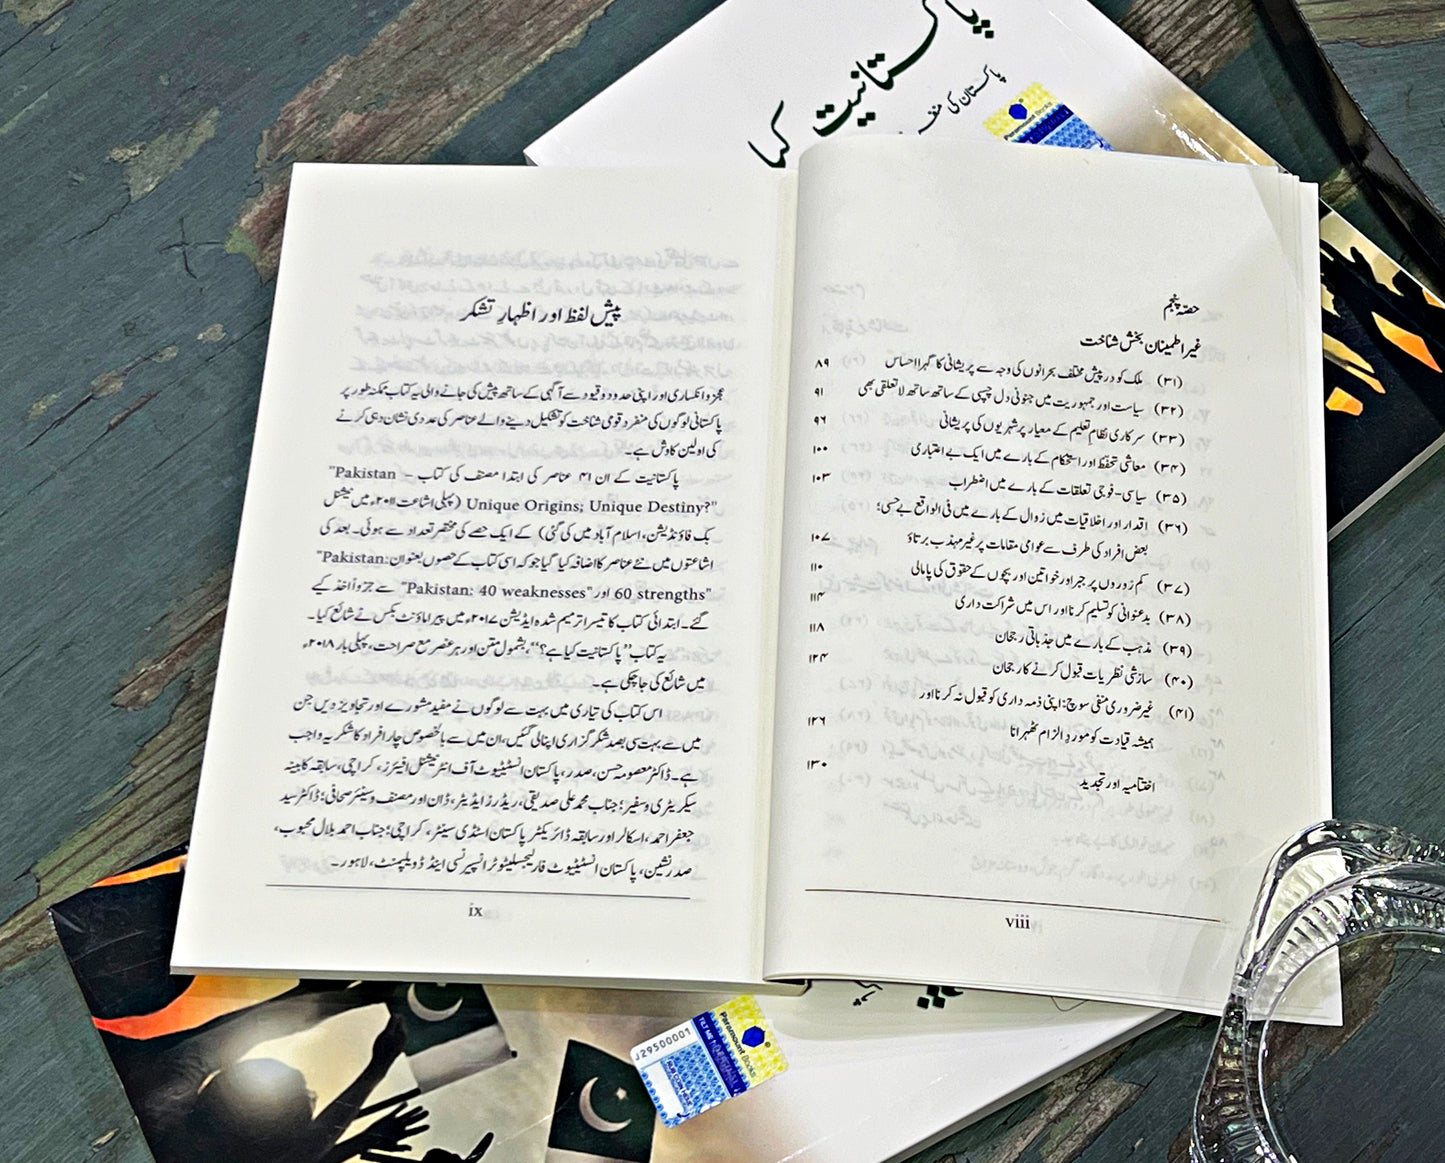 پاکستانیت کیا
پاکستان کی منفر
Paramount Books
حصّہ پنجم
غیر اطمینان بخش شناخت
(۳۱) ملک کو درپیش مختلف بحرانوں کی وجہ سے پریشانی کا گہرا احساس ۸۹
(۳۲) سیاست اور جمہوریت میں جنونی دل چسپی کے ساتھ ساتھ لاتعلقی بھی ۹۱
(۳۳) سرکاری نظامِ تعلیم کے معیار پر شہریوں کی پریشانی ۹۶
(۳۴) معاشی تحفظ اور استحکام کے بارے میں ایک بے اعتباری ۱۰۰
(۳۵) سیاسی-فوجی تعلقات کے بارے میں اضطراب ۱۰۳
(۳۶) اقدار اور اخلاقیات میں زوال کے بارے میں فی الواقع بے حسی؛
بعض افراد کی طرف سے عوامی مقامات پر غیر مہذب برتاؤ ۱۰۷
(۳۷) کم زوروں پر جبر اور خواتین اور بچوں کے حقوق کی پامالی ۱۱۰
(۳۸) بدعنوانی کو تسلیم کرنا اور اس میں شراکت داری ۱۱۴
(۳۹) مذہب کے بارے میں جذباتی رجحان ۱۱۸
(۴۰) سازشی نظریات قبول کرنے کا رجحان ۱۲۴
(۴۱) غیر ضروری منفی سوچ: اپنی ذمہ داری کو قبول نہ کرنا اور
ہمیشہ قیادت کو موردِ الزام ٹھہرانا ۱۲۶
اختتامیہ اور تجدید ۱۳۰
viii
پیش لفظ اور اظہارِ تشکر
عجز و انکساری اور اپنی حدود و قیود سے آگہی کے ساتھ پیش کی جانے والی یہ کتاب ممکنہ طور پر
پاکستانی لوگوں کی منفرد قومی شناخت کو تشکیل دینے والے عناصر کی عددی نشان دہی کرنے
کی اولین کاوش ہے۔
پاکستانیت کے ان ۴۱ عناصر کی ابتدا مصنف کی کتاب ۔ Pakistan"
"Unique Origins; Unique Destiny? (پہلی اشاعت ۲۰۱۱ء میں نیشنل
بک فاؤنڈیشن، اسلام آباد میں کی گئی) کے ایک حصے کی مختصر تعداد سے ہوئی۔ بعد کی
اشاعتوں میں نئے عناصر کا اضافہ کیا گیا جو کہ اسی کتاب کے حصوں بعنوان :Pakistan"
"60 strengths اور "Pakistan: 40 weaknesses" سے جزواً اخذ کیے
گئے۔ ابتدائی کتاب کا تیسرا ترمیم شدہ ایڈیشن ۲۰۱۷ء میں پیراماؤنٹ بکس نے شائع کیا۔
یہ کتاب ”پاکستانیت کیا ہے؟“، بشمول متن اور ہر عنصر مع صراحت، پہلی بار ۲۰۱۸ء
میں شائع کی جاچکی ہے۔
اس کتاب کی تیاری میں بہت سے لوگوں نے مفید مشورے اور تجاویز دیں جن
میں سے بہت سی بصد شکر گزاری اپنالی گئیں، ان میں سے بالخصوص چار افراد کا شکریہ واجب
ہے۔ ڈاکٹر معصومہ حسن، صدر، پاکستان انسٹیٹیوٹ آف انٹرنیشنل افیئرز، کراچی، سابقہ کابینہ
سیکریٹری و سفیر؛ جناب محمد علی صدیقی، ریڈرز ایڈیٹر، ڈان اور مصنف و سینئر صحافی؛ ڈاکٹر سید
جعفر احمد، اسکالر اور سابقہ ڈائریکٹر پاکستان اسٹڈی سینٹر، کراچی؛ جناب احمد بلال محبوب،
صدر نشین، پاکستان انسٹیٹیوٹ فار لیجسلیٹو ٹرانسپیرنسی اینڈ ڈویلپمنٹ، لاہور۔
ix
J29500001
TILT ME
Paramount Books